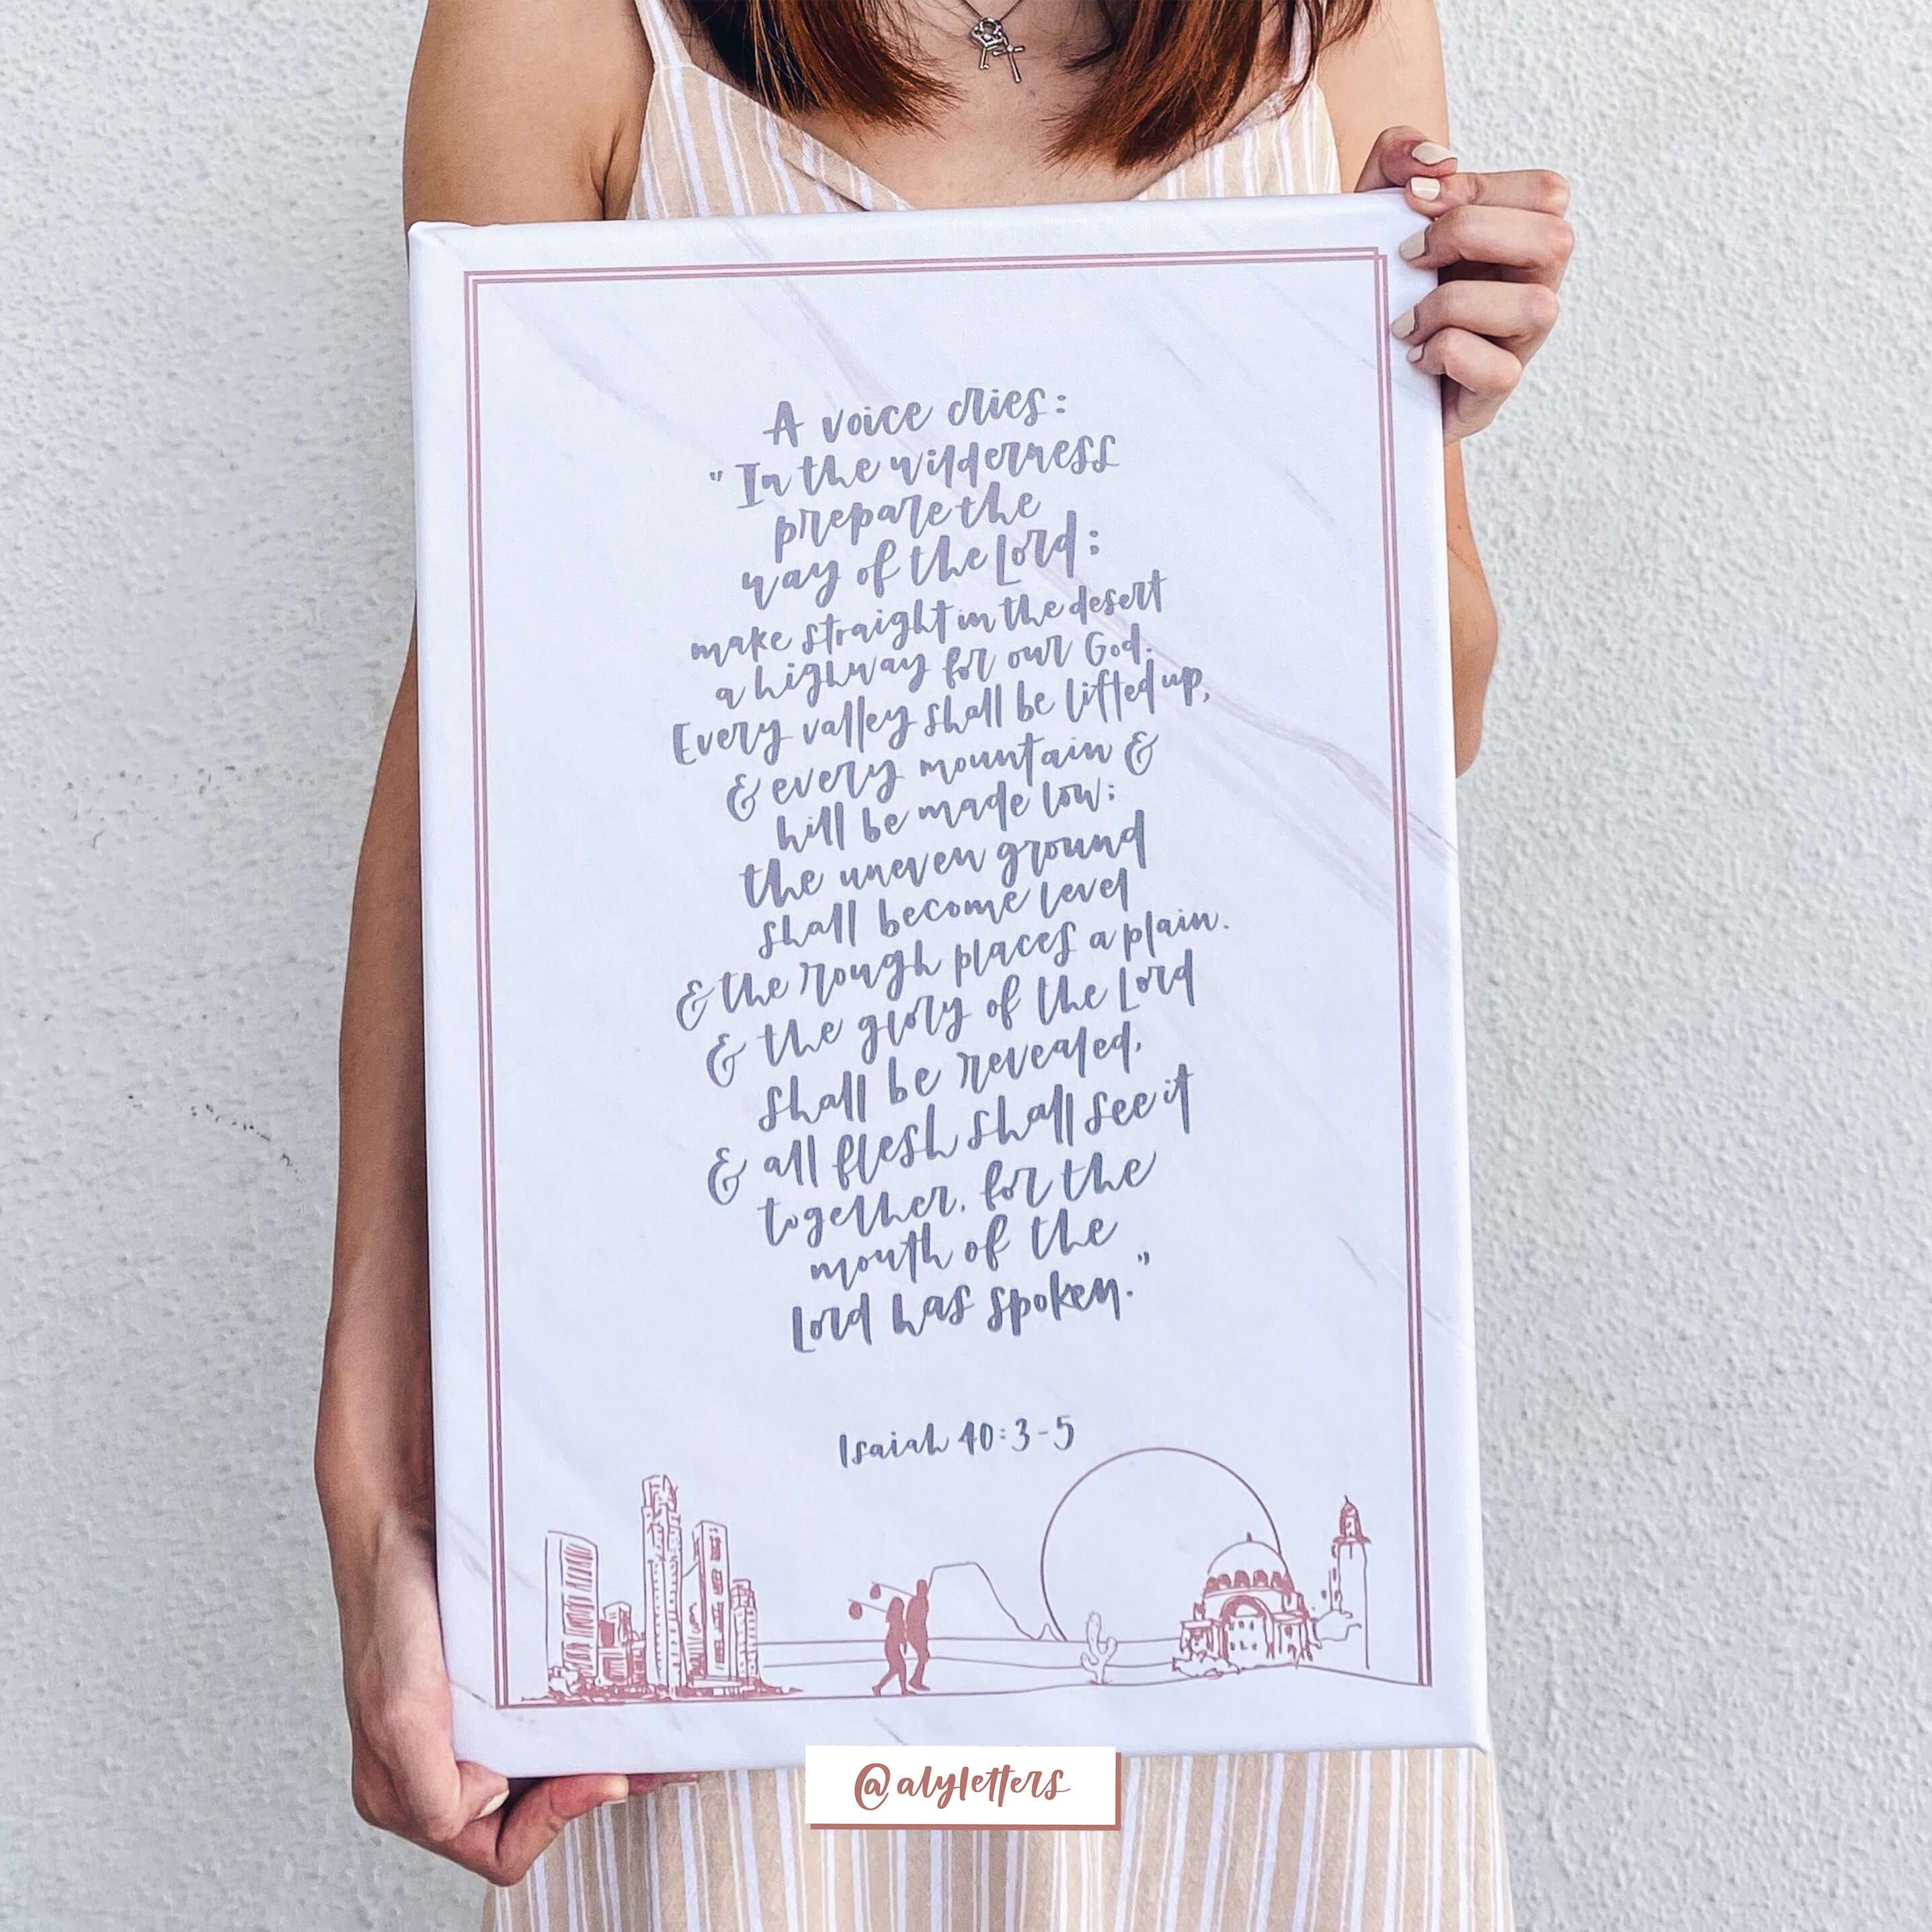 A voice cries:
"In the wilderness
prepare the
way of the Lord;
make straight in the desert
a highway for our God.
Every valley shall be lifted up,
& every mountain &
hill be made low;
the uneven ground
shall become level
& the rough places a plain.
& the glory of the Lord
shall be revealed,
& all flesh shall see it
together, for the
mouth of the
Lord has spoken."
Isaiah 40:3-5
@alyletters